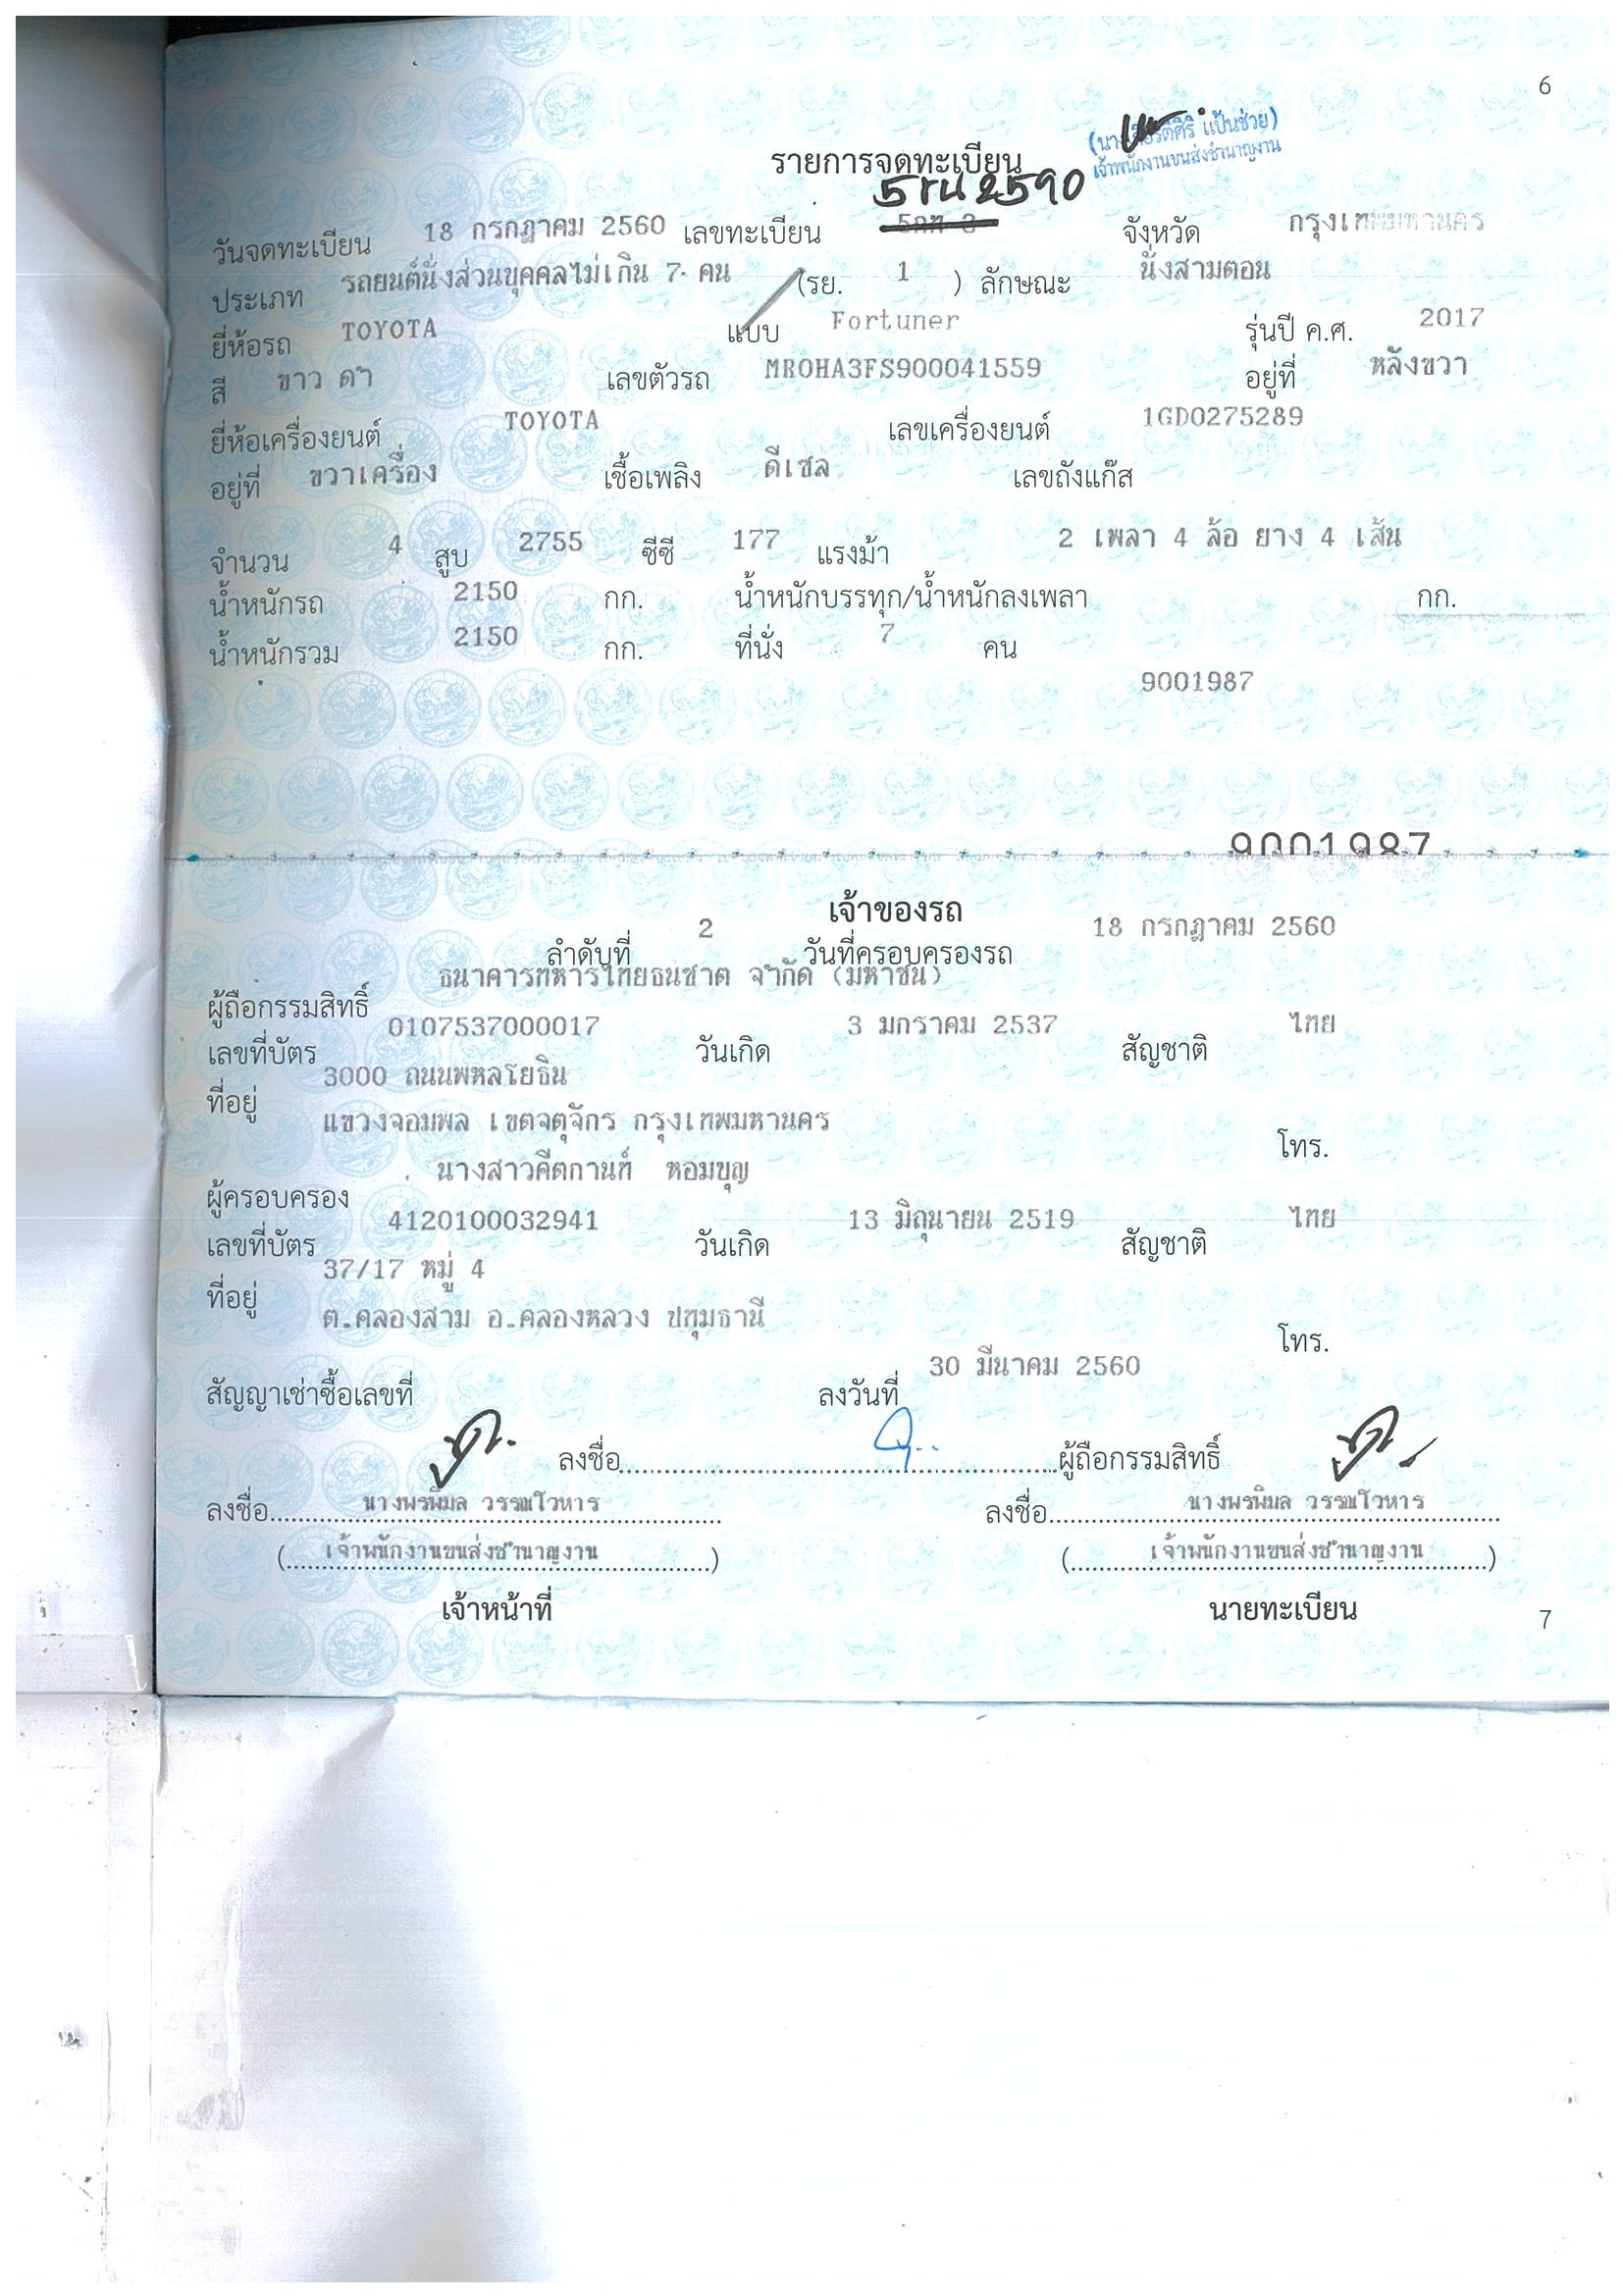 6
แป้นช่วย)
เจ้าพนักงานขนส่งชำนาญงาน
รายการจดทะเบียน
2590
วันจดทะเบียน 18 กรกฎาคม 2560 เลขทะเบียน จังหวัด กรุงเทพมหานคร
ประเภท รถยนต์นั่งส่วนบุคคลไม่เกิน 7 คน (รย. 1 ) ลักษณะ นั่งสามตอน
ยี่ห้อรถ TOYOTA แบบ Fortuner รุ่นปี ค.ศ. 2017
สี ขาว ดำ เลขตัวรถ MR0HA3FS900041559 อยู่ที่ หลังขวา
ยี่ห้อเครื่องยนต์ TOYOTA เลขเครื่องยนต์ 1GD0275289
อยู่ที่ ขวาเครื่อง เชื้อเพลิง ดีเซล เลขถังแก๊ส
จำนวน 4 สูบ 2755 ซีซี 177 แรงม้า 2 เพลา 4 ล้อ ยาง 4 เส้น
น้ำหนักรถ 2150 กก. น้ำหนักบรรทุก/น้ำหนักลงเพลา กก.
น้ำหนักรวม 2150 กก. ที่นั่ง 7 คน
9001987
9001987
เจ้าของรถ
ลำดับที่ 2 วันที่ครอบครองรถ 18 กรกฎาคม 2560
ผู้ถือกรรมสิทธิ์ ธนาคารทหารไทยธนชาต จำกัด (มหาชน)
เลขที่บัตร 0107537000017 วันเกิด 3 มกราคม 2537 สัญชาติ ไทย
ที่อยู่ 3000 ถนนพหลโยธิน
แขวงจอมพล เขตจตุจักร กรุงเทพมหานคร โทร.
ผู้ครอบครอง นางสาวคีตกานท์ หอมบุญ
เลขที่บัตร 4120100032941 วันเกิด 13 มิถุนายน 2519 สัญชาติ ไทย
ที่อยู่ 37/17 หมู่ 4
ต.คลองสาม อ.คลองหลวง ปทุมธานี โทร.
สัญญาเช่าซื้อเลขที่ ลงวันที่ 30 มีนาคม 2560
ลงชื่อ ผู้ถือกรรมสิทธิ์
ลงชื่อ นางพรพิมล วรรณโวหาร ลงชื่อ นางพรพิมล วรรณโวหาร
(เจ้าพนักงานขนส่งชำนาญงาน) (เจ้าพนักงานขนส่งชำนาญงาน)
เจ้าหน้าที่ นายทะเบียน 7